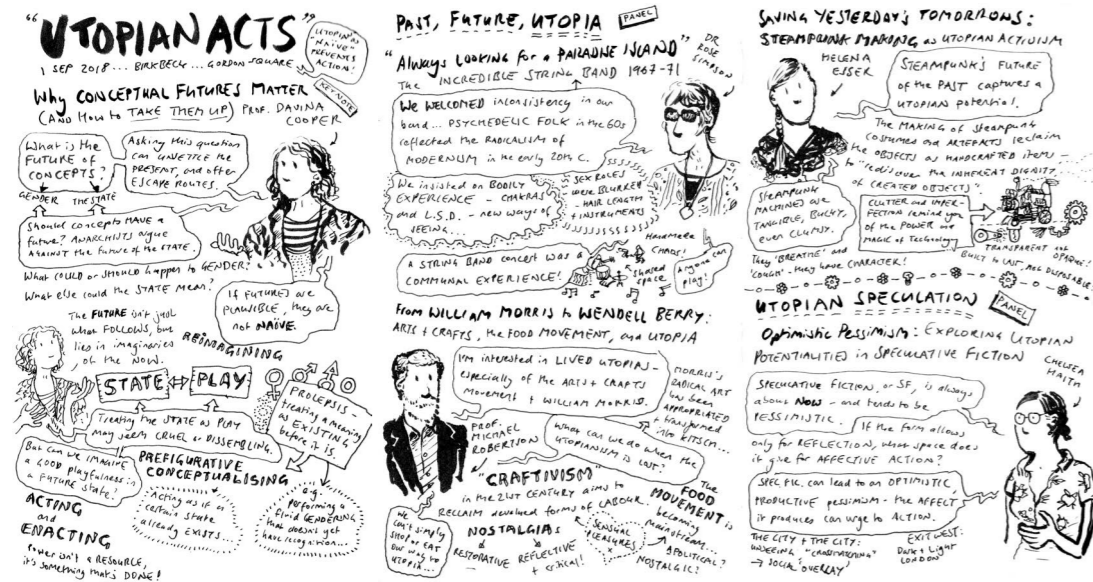 "UTOPIAN ACTS"
1 SEP 2018... BIRKBECK... GORDON SQUARE
UTOPIA as
"NAÏVE"
PREVENTS
ACTION!
KEYNOTE
Why CONCEPTUAL FUTURES MATTER
(AND HOW to TAKE THEM UP) PROF. DAVINA
COOPER
What is the
FUTURE OF
CONCEPTS?
GENDER THE STATE
Asking this question
can UNSETTLE the
PRESENT, and offer
ESCAPE ROUTES.
Should concepts HAVE a
future? ANARCHISTS argue
AGAINST the future of the STATE.
What COULD or SHOULD happen to GENDER?
What else could the STATE mean?
IF FUTURES are
PLAUSIBLE, they are
not NAÏVE.
The FUTURE isn't just
what FOLLOWS, but
lies in imaginaries
of the NOW.
REIMAGINING
STATE PLAY
Treating the STATE as PLAY
may seem CRUEL or DISSEMBLING.
PROLEPSIS -
treating a meaning
as EXISTING
before it is.
But can we IMAGINE
a GOOD playfulness in
a FUTURE STATE?
PREFIGURATIVE
CONCEPTUALISING
"Acting as if a
certain state
already EXISTS...
e.g.
performing a
fluid GENDERING
that doesn't yet
have recognition...
ACTING
and
ENACTING
POWER isn't a RESOURCE,
it's something that's DONE!
PAST, FUTURE, UTOPIA PANEL
"Always Looking for a PARADISE ISLAND"
The INCREDIBLE STRING BAND 1967-71
DR
ROSE
SIMPSON
We WELCOMED inconsistency in our
band... PSYCHEDELIC FOLK in the 60s
reflected the RADICALISM of
MODERNISM in the early 20th C.
We insisted on BODILY
EXPERIENCE - CHAKRAS
and L.S.D. - new ways of
SEEING...
SEX ROLES
WERE BLURRED
- HAIR LENGTH
+ INSTRUMENTS
A STRING BAND concert was a
COMMUNAL EXPERIENCE!
Handmade
CHAOS!
shared
space
Anyone can
play!
From WILLIAM MORRIS to WENDELL BERRY:
ARTS + CRAFTS, the FOOD MOVEMENT, and UTOPIA
I'm interested in LIVED UTOPIAS -
especially of the ARTS + CRAFTS
Movement + WILLIAM MORRIS.
MORRIS'S
RADICAL ART
has been
APPROPRIATED
+ transformed
into KITSCH...
PROF.
MICHAEL
ROBERTSON
What can we do when the
UTOPIANISM is LOST?
"CRAFTIVISM"
in the 21ST CENTURY aims to
RECLAIM devalued forms of LABOUR
We
can't simply
SHOP or EAT
our way to
UTOPIA...
NOSTALGIAS
RESTORATIVE REFLECTIVE
+ critical!
SENSUAL
PLEASURES
The
FOOD
MOVEMENT is
becoming
mainstream...
APOLITICAL?
NOSTALGIC?
SAVING YESTERDAY'S TOMORROWS:
STEAMPUNK MAKING as UTOPIAN ACTIVISM
HELENA
ESSER
STEAMPUNK'S FUTURE
of the PAST captures a
UTOPIAN potential.
The MAKING of Steampunk
costumes and ARTEFACTS reclaim
the OBJECTS as HANDCRAFTED items -
to "rediscover the INHERENT DIGNITY
OF CREATED OBJECTS"
STEAMPUNK
MACHINES are
TANGIBLE, BULKY,
even CLUMSY.
CLUTTER and IMPER-
FECTION remind you
of the POWER and
MAGIC of Technology
They 'BREATHE' and
'COUGH' - they HAVE CHARACTER!
TRANSPARENT not
OPAQUE!
BUILT to LAST, not DISPOSABLE!
UTOPIAN SPECULATION PANEL
Optimistic Pessimism: EXPLORING UTOPIAN
POTENTIALITIES in SPECULATIVE FICTION
CHELSEA
HAITH
SPECULATIVE FICTION, or SF, is always
about NOW - and tends to be
PESSIMISTIC.
If the form allows
only for REFLECTION, what space does
it give for AFFECTIVE ACTION?
SPEC FIC. can lead to an OPTIMISTIC
PRODUCTIVE pessimism - the AFFECT
it produces can urge to ACTION.
THE CITY + THE CITY:
UNSEEING
→ SOCIAL 'OVERLAY'
EXIT WEST:
Dark + Light
LONDON